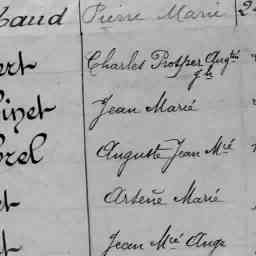 baud Pierre Marie 2
ert Charles Prosper Augtin
gh
inet Jean Marié
rel Auguste Jean Mié
et Arsène Marie
et Jean Mié Ange